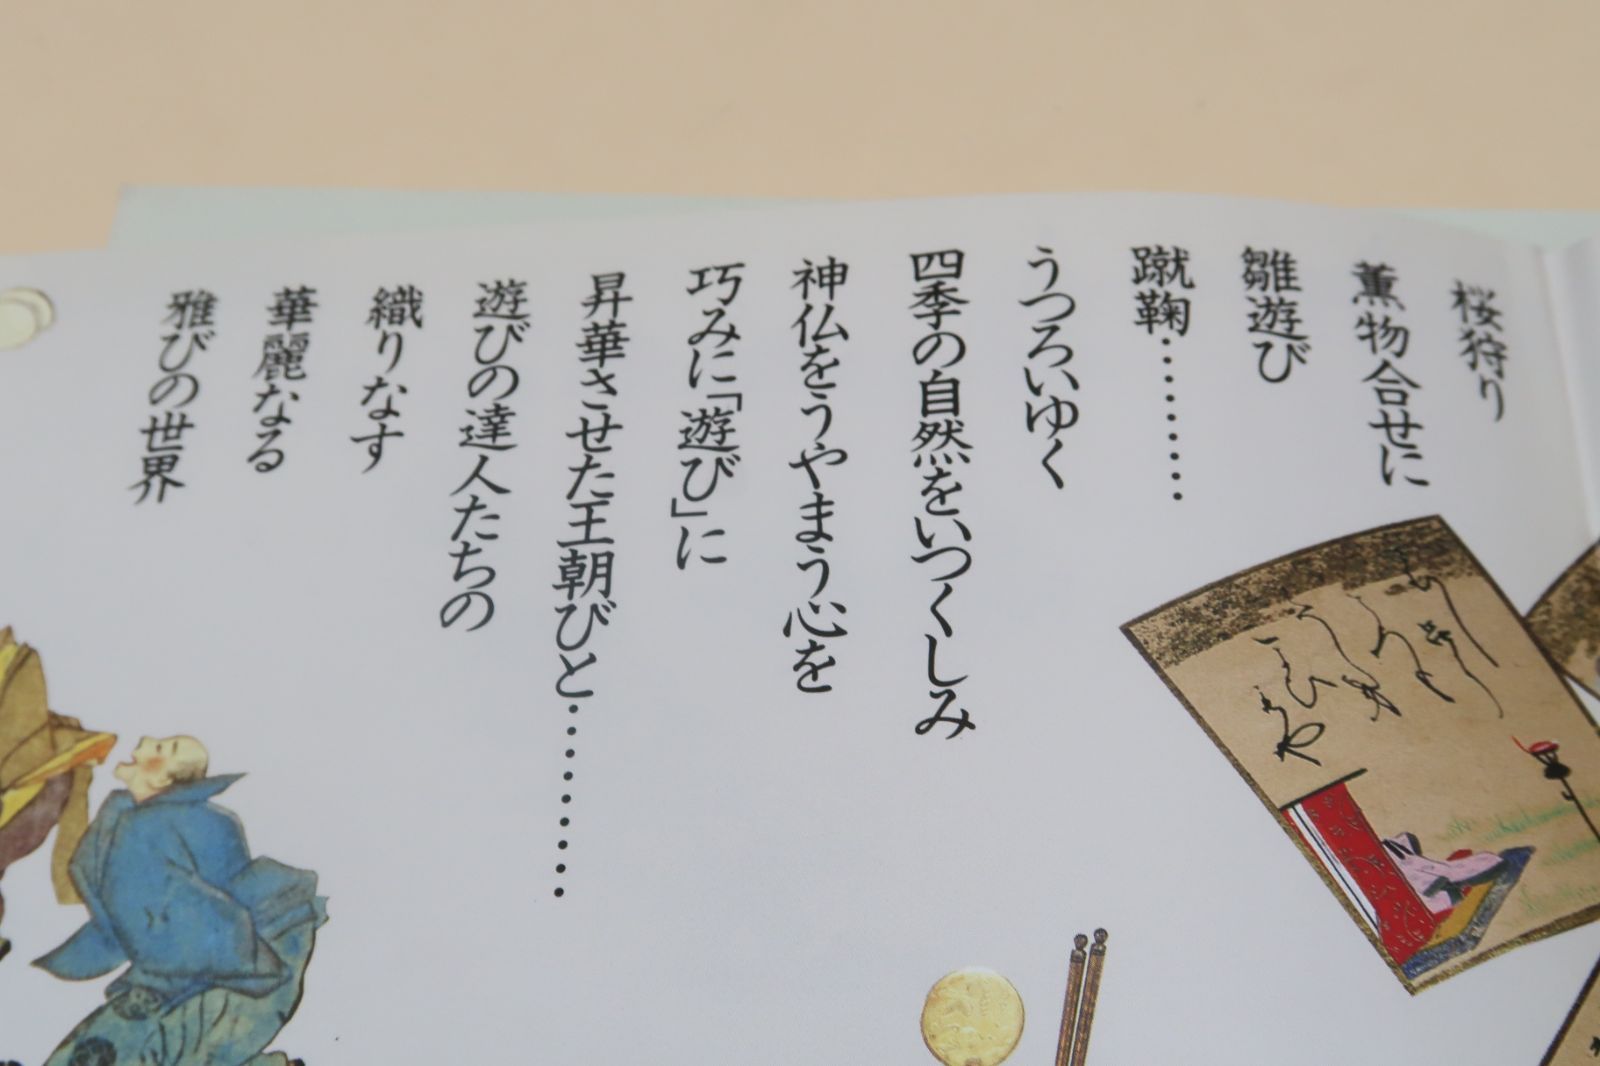 桜狩り
薫物合せに
雛遊び
蹴鞠・・・・・・・・
うつろいゆく
四季の自然をいつくしみ
神仏をうやまう心を
巧みに「遊び」に
昇華させた王朝びと・・・・・・・・・
遊びの達人たちの
織りなす
華麗なる
雅びの世界